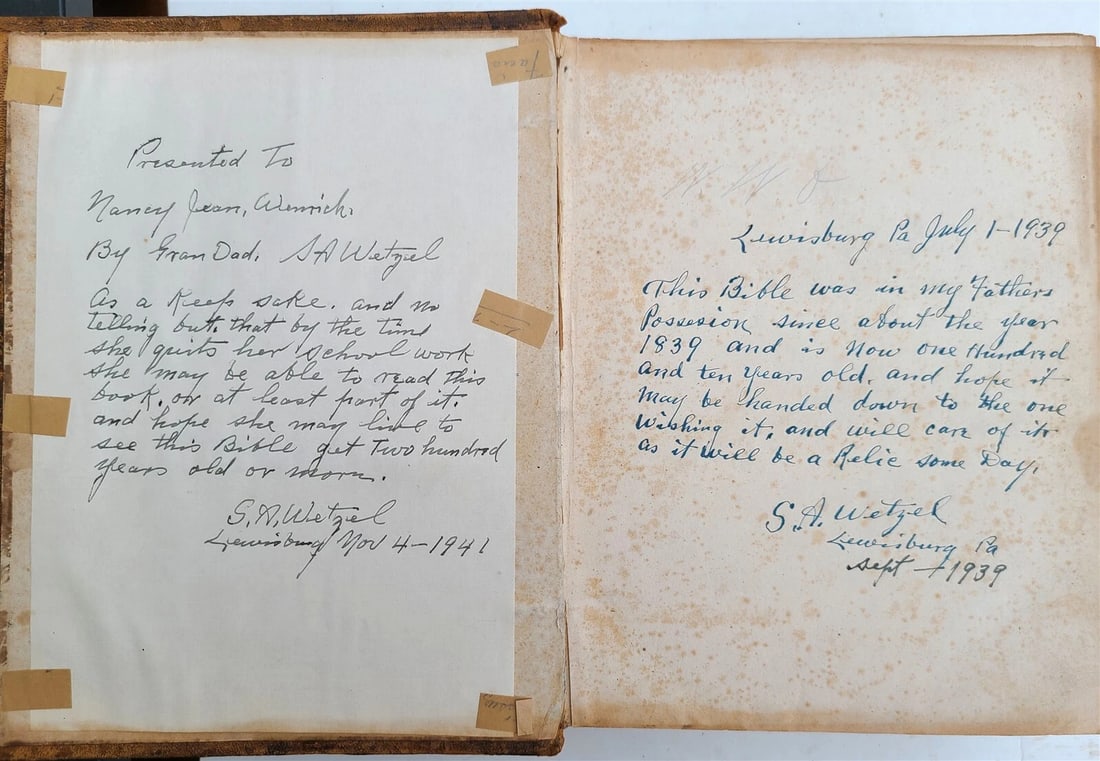 Presented To
Nancy Jean, Wenrich.
By Gran Dad. S A Wetzel
As a Keep sake. and no
telling but, that by the time
she quits her school work
she may be able to read this
book, or at least part of it,
and hope she may live to
see this Bible get Two hundred
years old or more.
S. A. Wetzel
Lewisburg Nov 4-1941
Lewisburg Pa July 1-1939
This Bible was in my Fathers
Possesion since about the year
1839 and is Now one Hundred
and ten years old. and hope it
may be handed down to the one
wishing it, and will care of it
as it will be a Relic some Day.
S. A. Wetzel
Lewisburg Pa
Sept - 1939